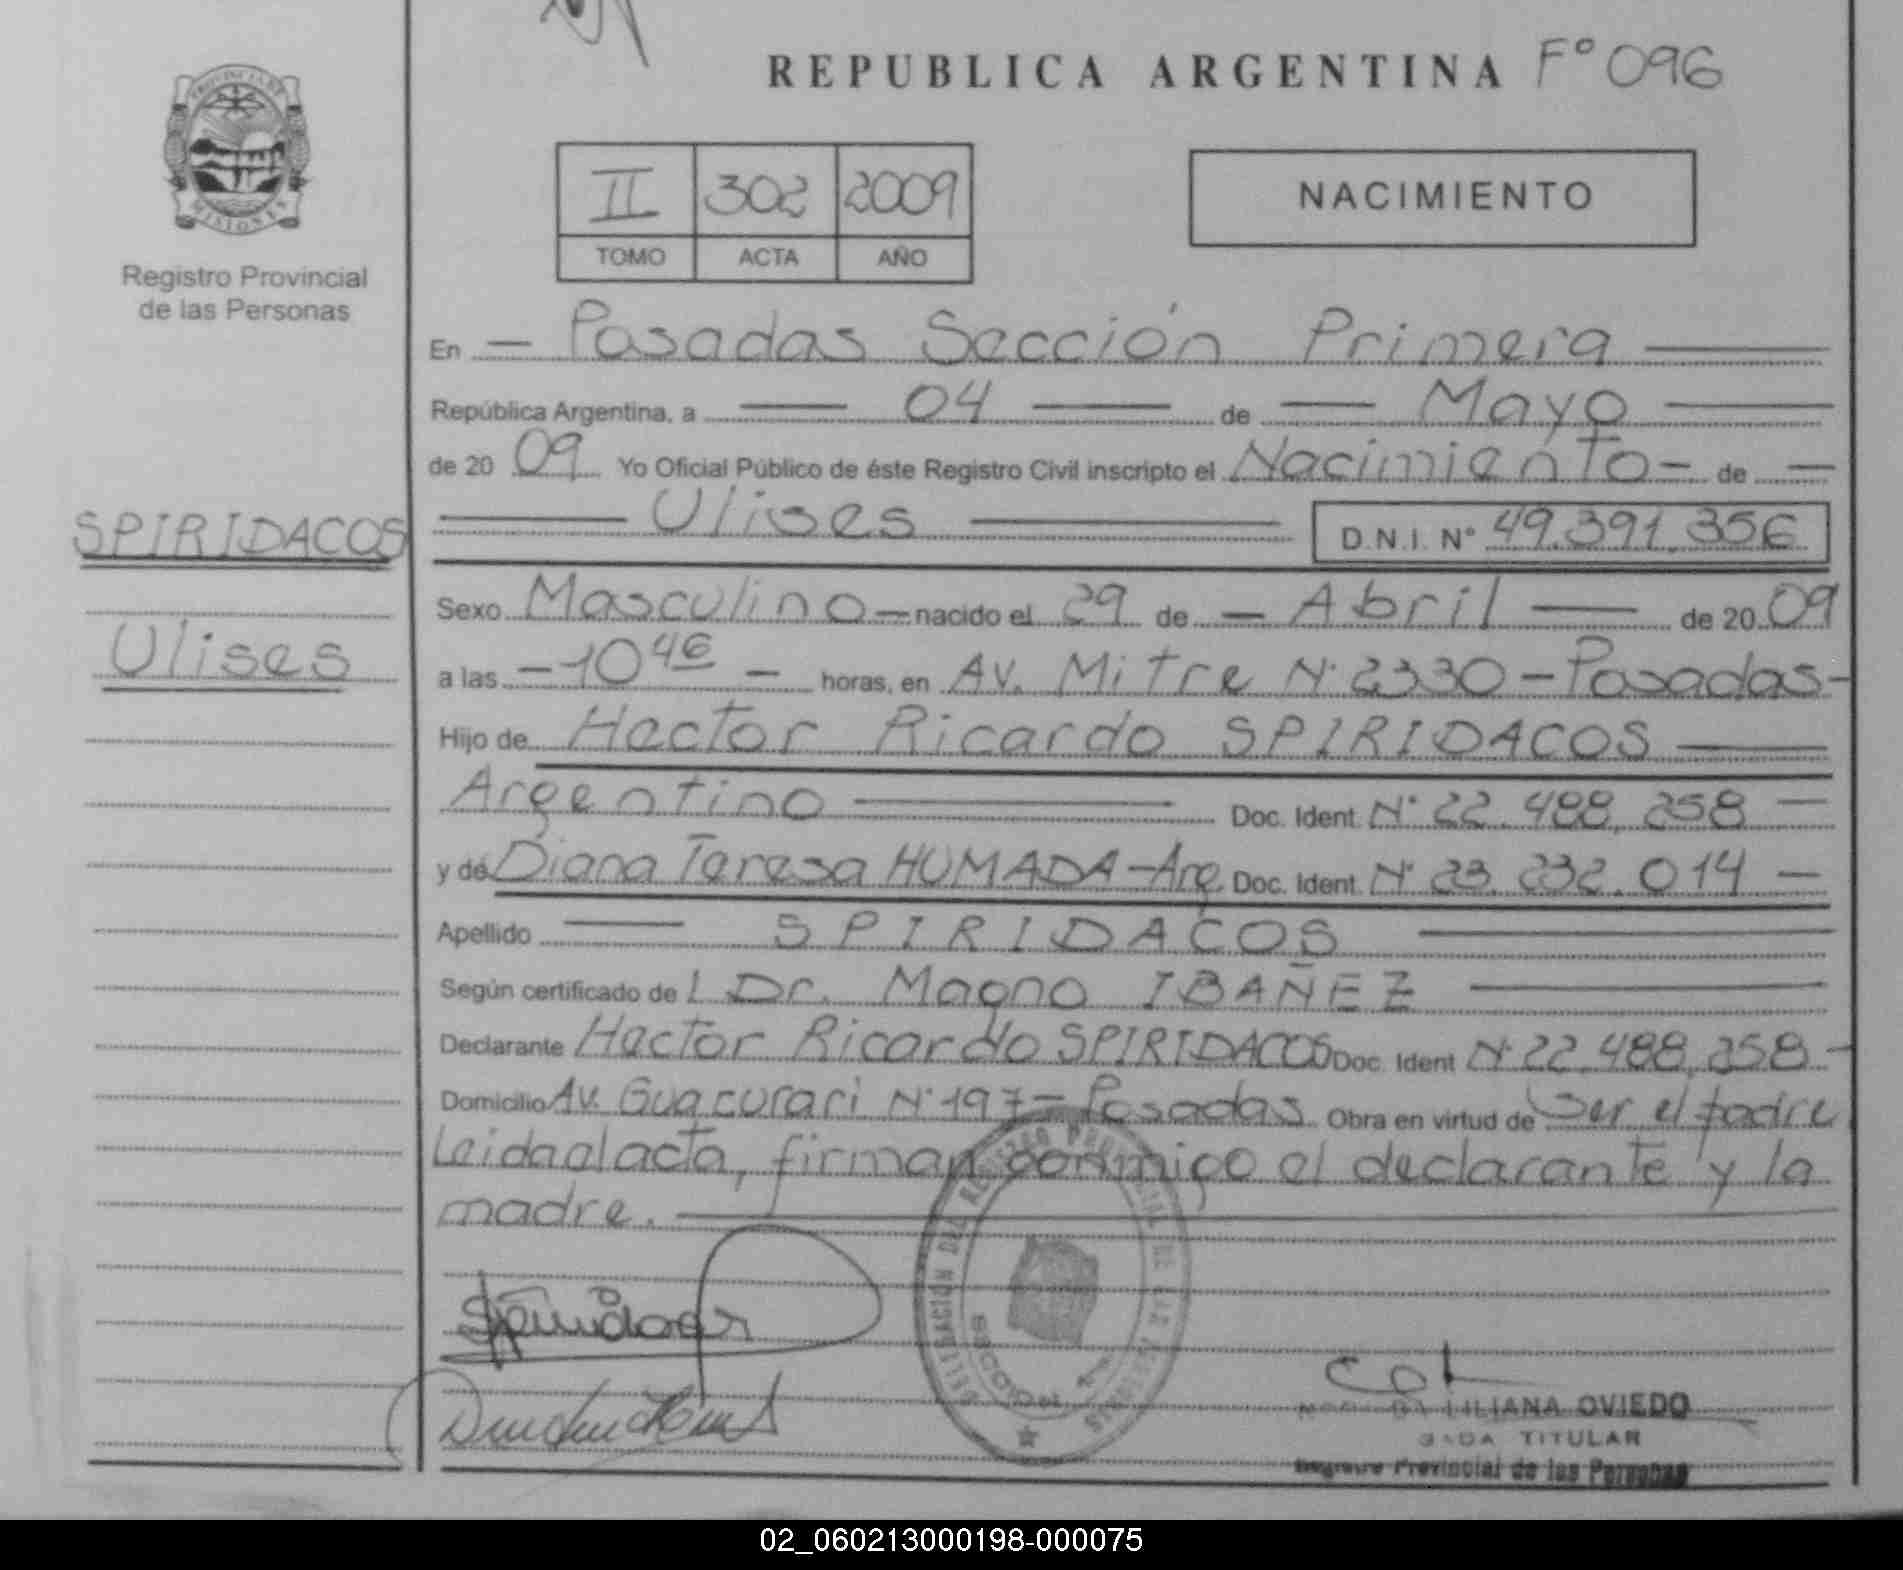 REPUBLICA ARGENTINA Fº 096
PROVINCIA DE
MISIONES
Registro Provincial
de las Personas
II 302 2009
TOMO ACTA AÑO
NACIMIENTO
En — Posadas Sección Primera
República Argentina, a 04 de Mayo
de 20 09 Yo Oficial Público de éste Registro Civil inscripto el Nacimiento - de
Ulises D.N.I. Nº 49.391.356
SPIRIDACOS
Ulises
Sexo Masculino — nacido el 29 de — Abril — de 20 09
a las — 10 46 — horas, en Av. Mitre Nº 2330 - Posadas -
Hijo de Hector Ricardo SPIRIDACOS
Argentino Doc. Ident. Nº 22.488.258 —
y de Diana Teresa HUMADA - Arg. Doc. Ident. Nº 23.232.014 —
Apellido — SPIRIDACOS
Según certificado de l Dr. Magno IBAÑEZ
Declarante Hector Ricardo SPIRIDACOS Doc. Ident Nº 22.488.258 -
Domicilio Av. Guacurari Nº 197 - Posadas Obra en virtud de Ser el padre
Leida el acta, firman conmigo el declarante y la
madre.
DELEGACIÓN DEL REGISTRO PROVINCIAL DE LAS PERSONAS
SECCION 1ª
LILIANA OVIEDO
TITULAR
Registro Provincial de las Personas
02_060213000198-000075